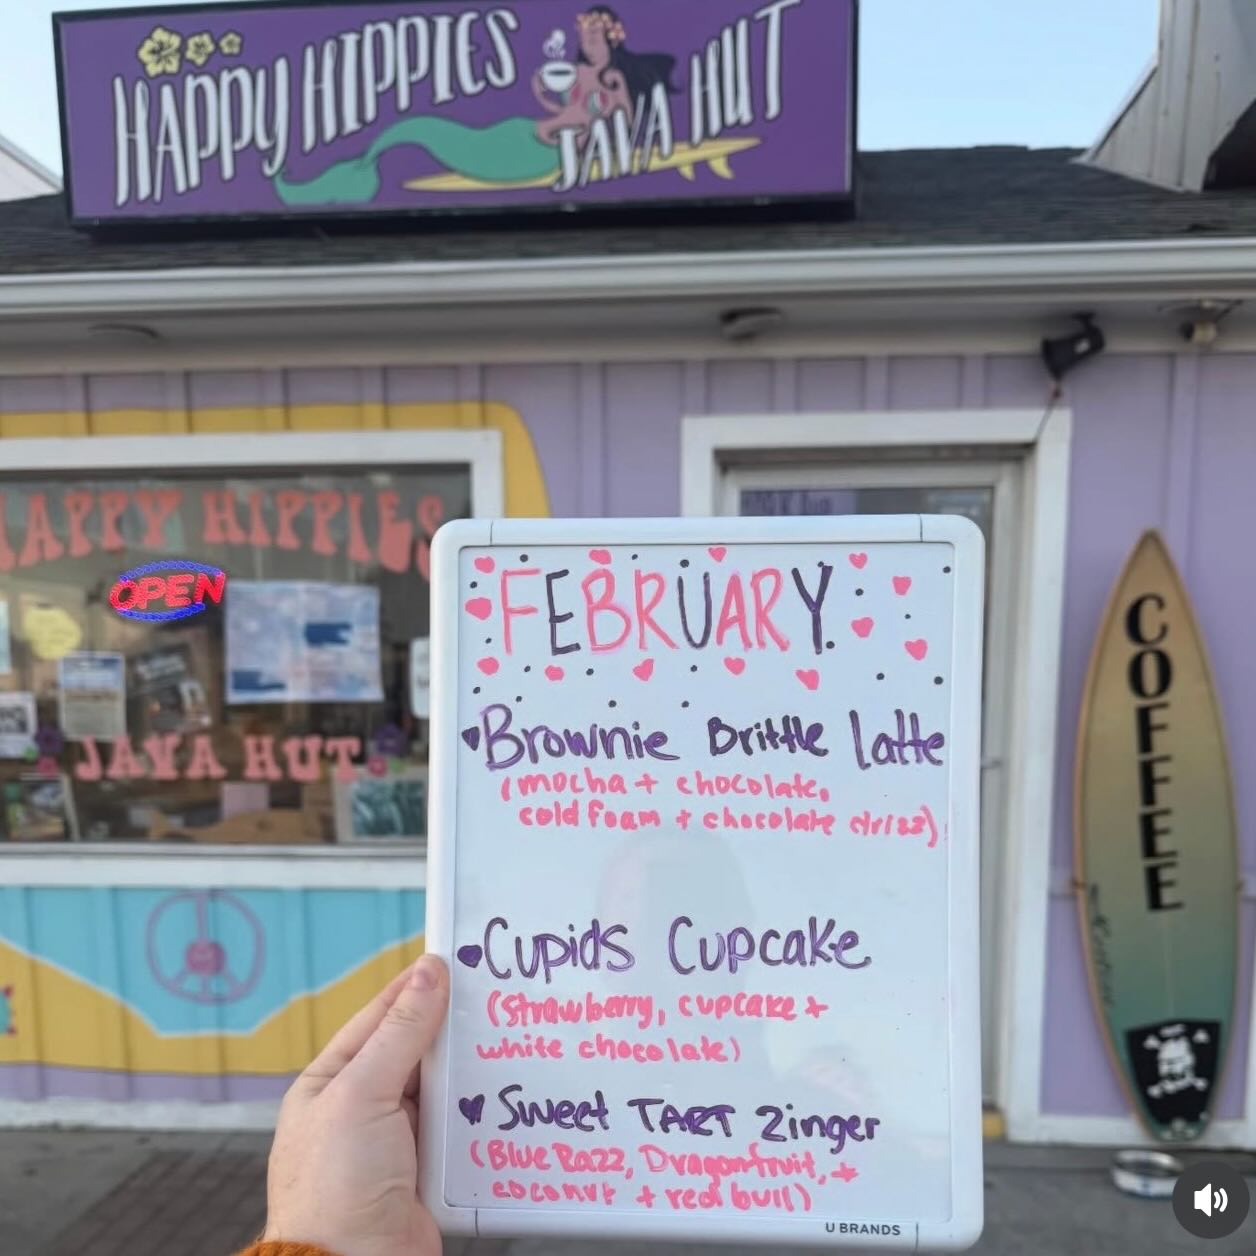 HAPPY HIPPIES
JAVA HUT
HAPPY HIPPIES
OPEN
JAVA HUT
COFFEE
FEBRUARY
Brownie Brittle latte
(mocha + chocolate,
cold foam + chocolate drizz)
Cupids Cupcake
(strawberry, cupcake +
white chocolate)
Sweet TART Zinger
(Blue Razz, Dragonfruit, +
coconut + red bull)
U BRANDS